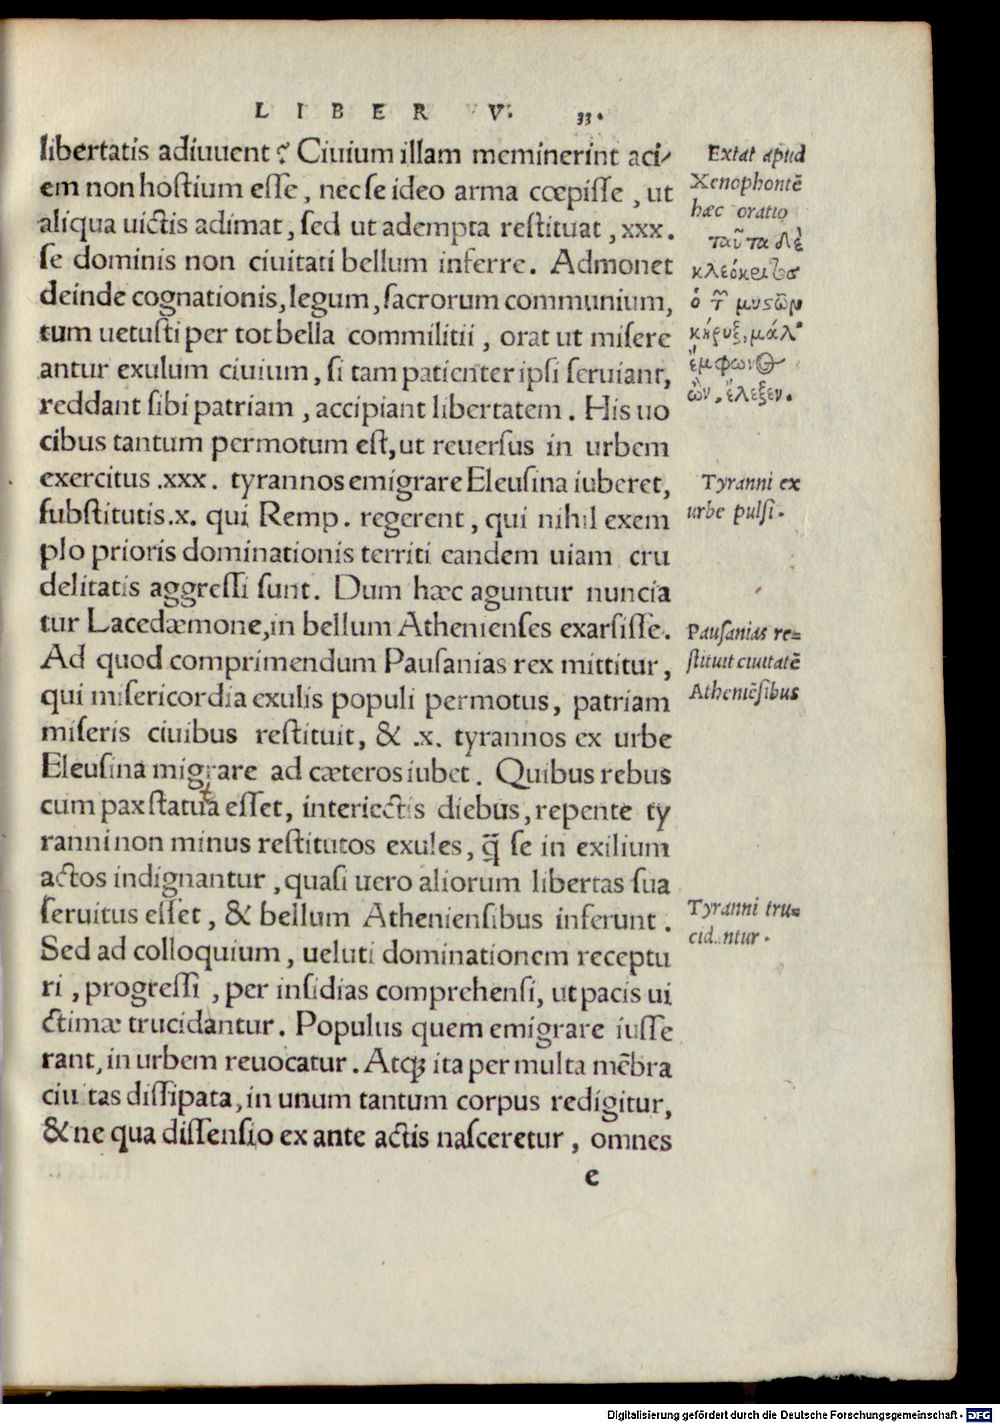 LIBER V. 33.
libertatis adiuuent? Ciuium illam meminerint aci/
em non hostium esse, nec se ideo arma cœpisse, ut
aliqua uictis adimat, sed ut adempta restituat, xxx.
se dominis non ciuitati bellum inferre. Admonet
deinde cognationis, legum, sacrorum communium,
tum uetusti per tot bella commilitii, orat ut misere
antur exulum ciuium, si tam patienter ipsi seruiant,
reddant sibi patriam, accipiant libertatem. His uo
cibus tantum permotum est, ut reuersus in urbem
exercitus .xxx. tyrannos emigrare Eleusina iuberet,
substitutis .x. qui Remp. regerent, qui nihil exem
plo prioris dominationis territi eandem uiam cru
delitatis aggressi sunt. Dum hæc aguntur nuncia
tur Lacedæmone, in bellum Athenienses exarsisse.
Ad quod comprimendum Pausanias rex mittitur,
qui misericordia exulis populi permotus, patriam
miseris ciuibus restituit, & .x. tyrannos ex urbe
Eleusina migrare ad cæteros iubet. Quibus rebus
cum pax statuta esset, interiectis diebus, repente ty
ranni non minus restitutos exules, q̃ se in exilium
actos indignantur, quasi uero aliorum libertas sua
seruitus esset, & bellum Atheniensibus inferunt.
Sed ad colloquium, ueluti dominationem receptu
ri, progressi, per insidias comprehensi, ut pacis ui
ctimæ trucidantur. Populus quem emigrare iusse
rant, in urbem reuocatur. Atqꝫ ita per multa mēbra
ciuitas dissipata, in unum tantum corpus redigitur,
& ne qua dissensio ex ante actis nasceretur, omnes
e
Extat apud
Xenophontē
hæc oratio
ταῦτα δὲ
κλεόκριτος
ὁ τ̃ μυςῶν
κήρυξ, μάλ'
ὢν, ἔλεξεν.
Tyranni ex
urbe pulsi.
Pausanias re=
stituit ciuitatē
Atheniēsibus
Tyranni tru=
cidantur.
Digitalisierung gefördert durch die Deutsche Forschungsgemeinschaft - DFG